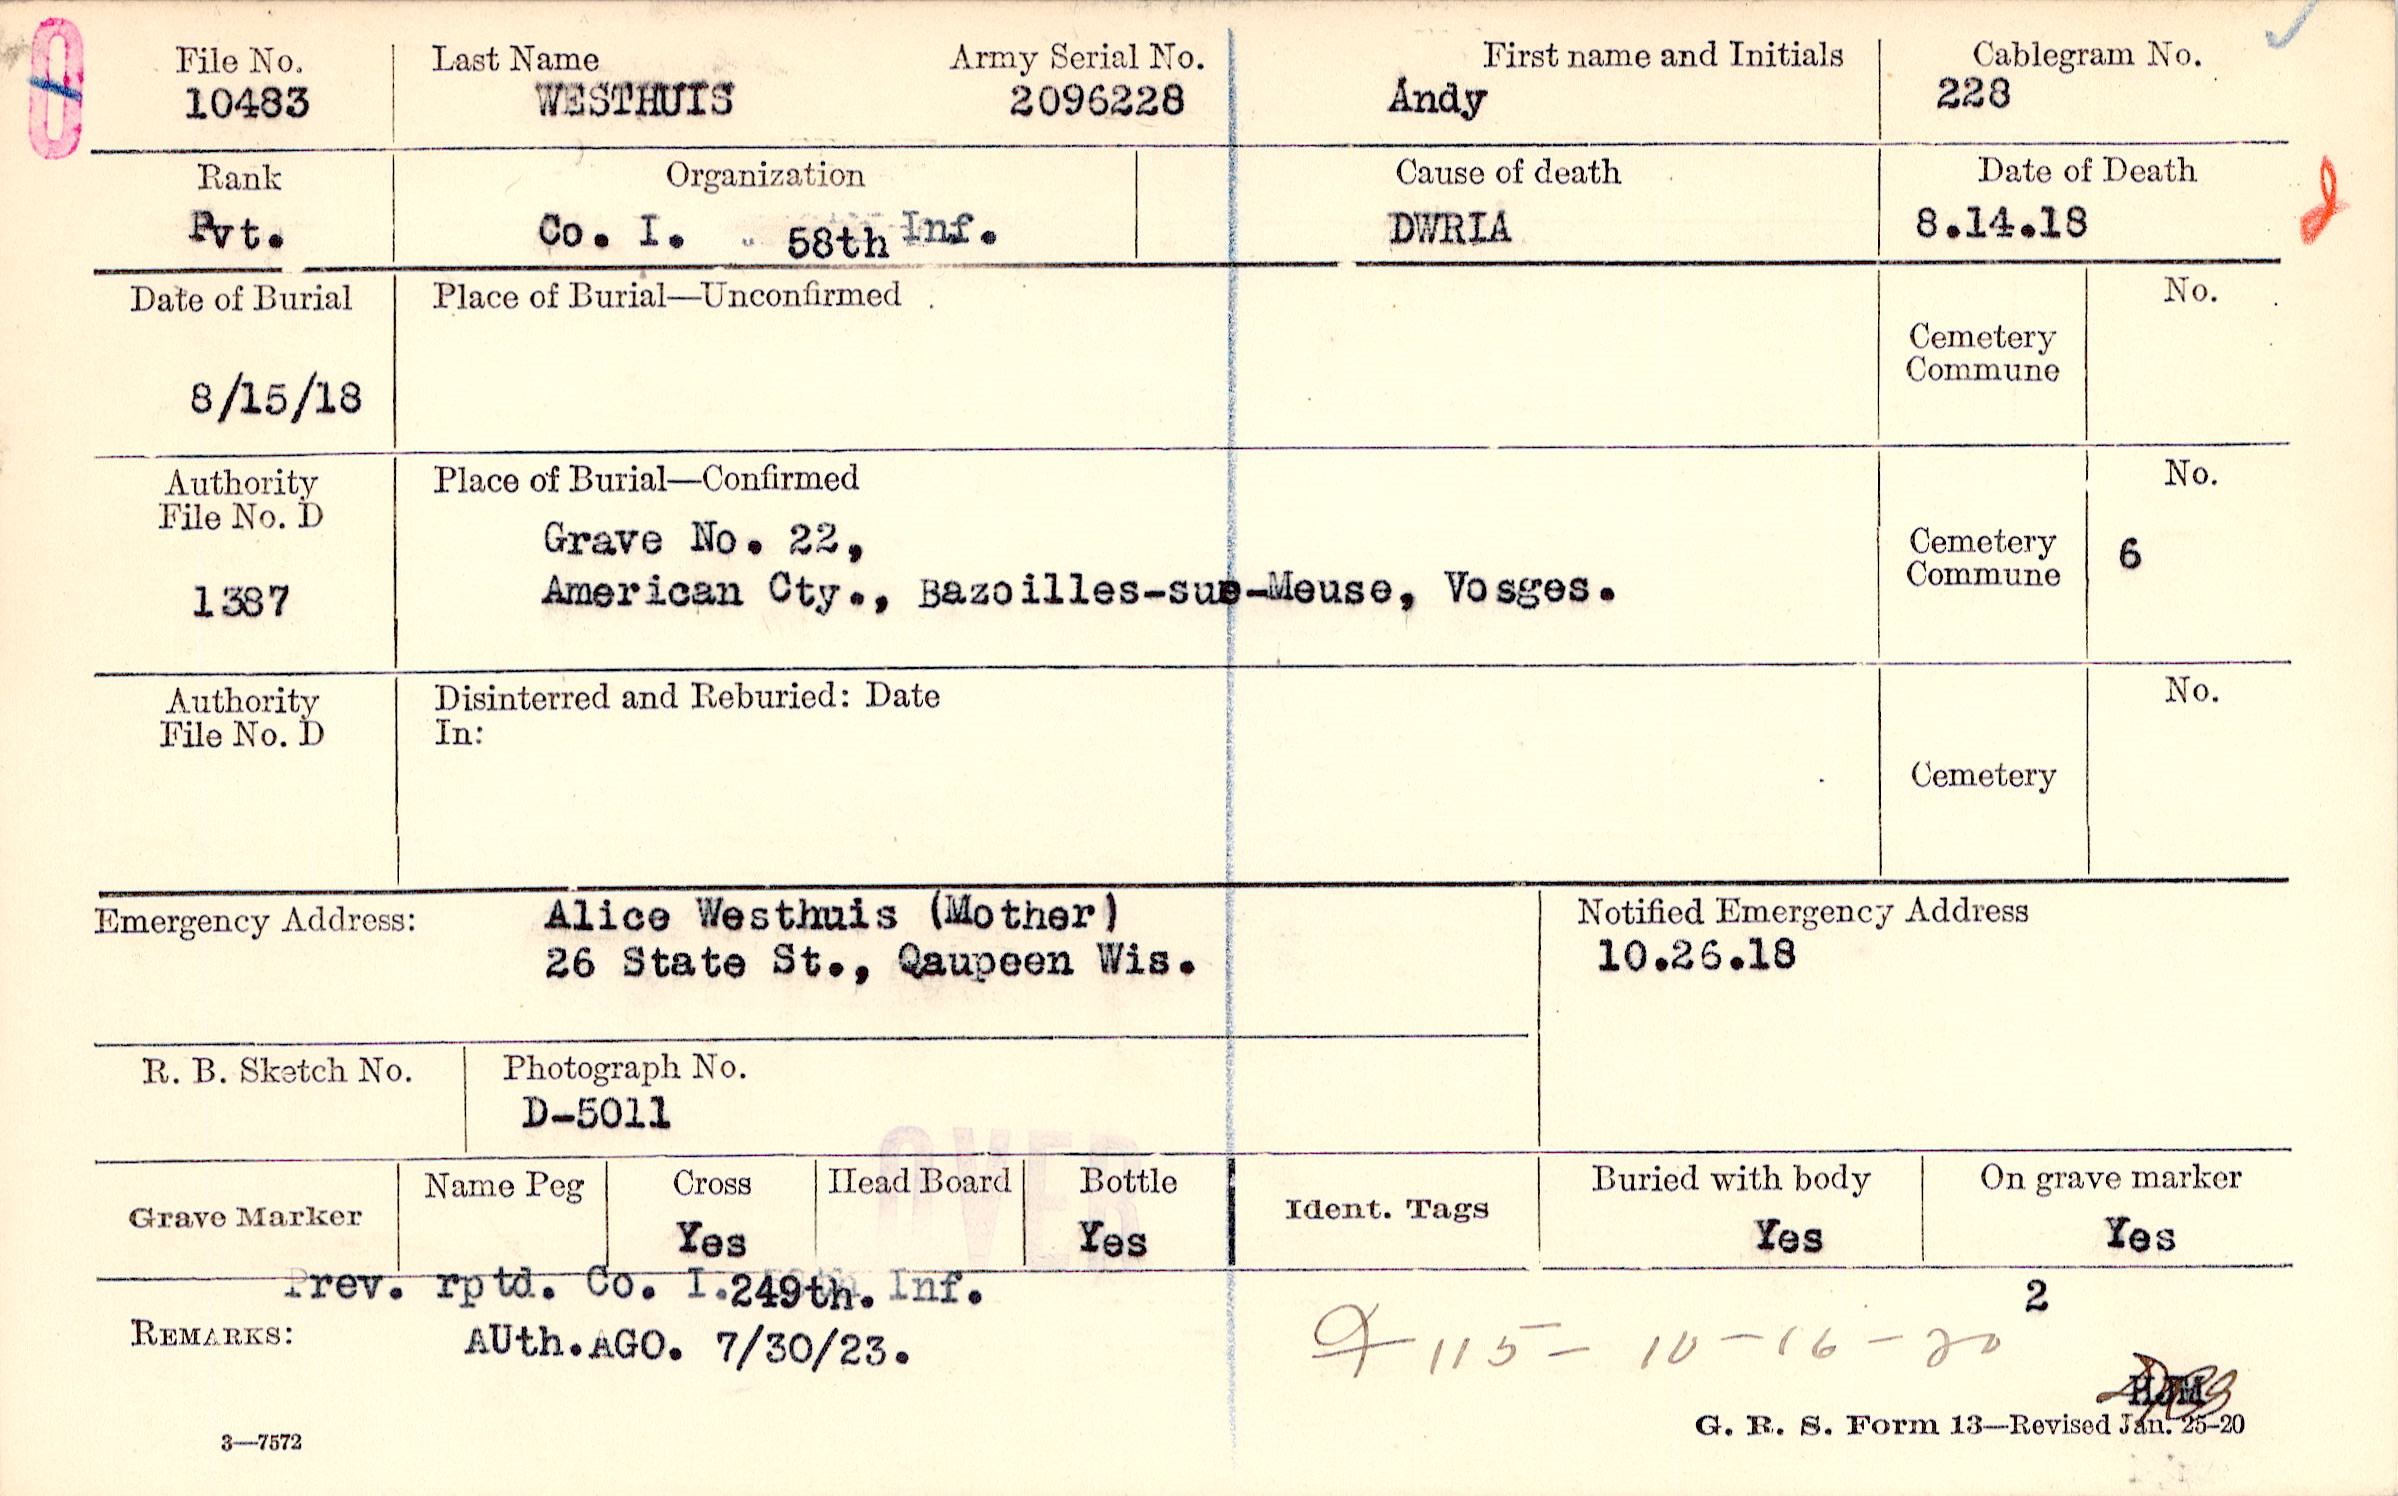 File No. Last Name Army Serial No. First name and Initials Cablegram No.
10483 WESTHUIS 2096228 Andy 228
Rank Organization Cause of death Date of Death
Pvt. Co. I. 58th Inf. DWRIA 8.14.18
Date of Burial Place of Burial—Unconfirmed No.
Cemetery
Commune
8/15/18
Authority Place of Burial—Confirmed No.
File No. D
Grave No. 22, Cemetery 6
1387 American Cty., Bazoilles-sur-Meuse, Vosges. Commune
Authority Disinterred and Reburied: Date No.
File No. D In:
Cemetery
Emergency Address: Alice Westhuis (Mother) Notified Emergency Address
26 State St., Qaupeen Wis. 10.26.18
R. B. Sketch No. Photograph No.
D-5011
OVER
Grave Marker Name Peg Cross Head Board Bottle Ident. Tags Buried with body On grave marker
Yes Yes Yes Yes
Prev. rptd. Co. I. 249th. Inf. 2
REMARKS: AUth.AGO. 7/30/23. 115- 10-16-20
HJM
3—7572 G. R. S. Form 13—Revised Jan. 25-20